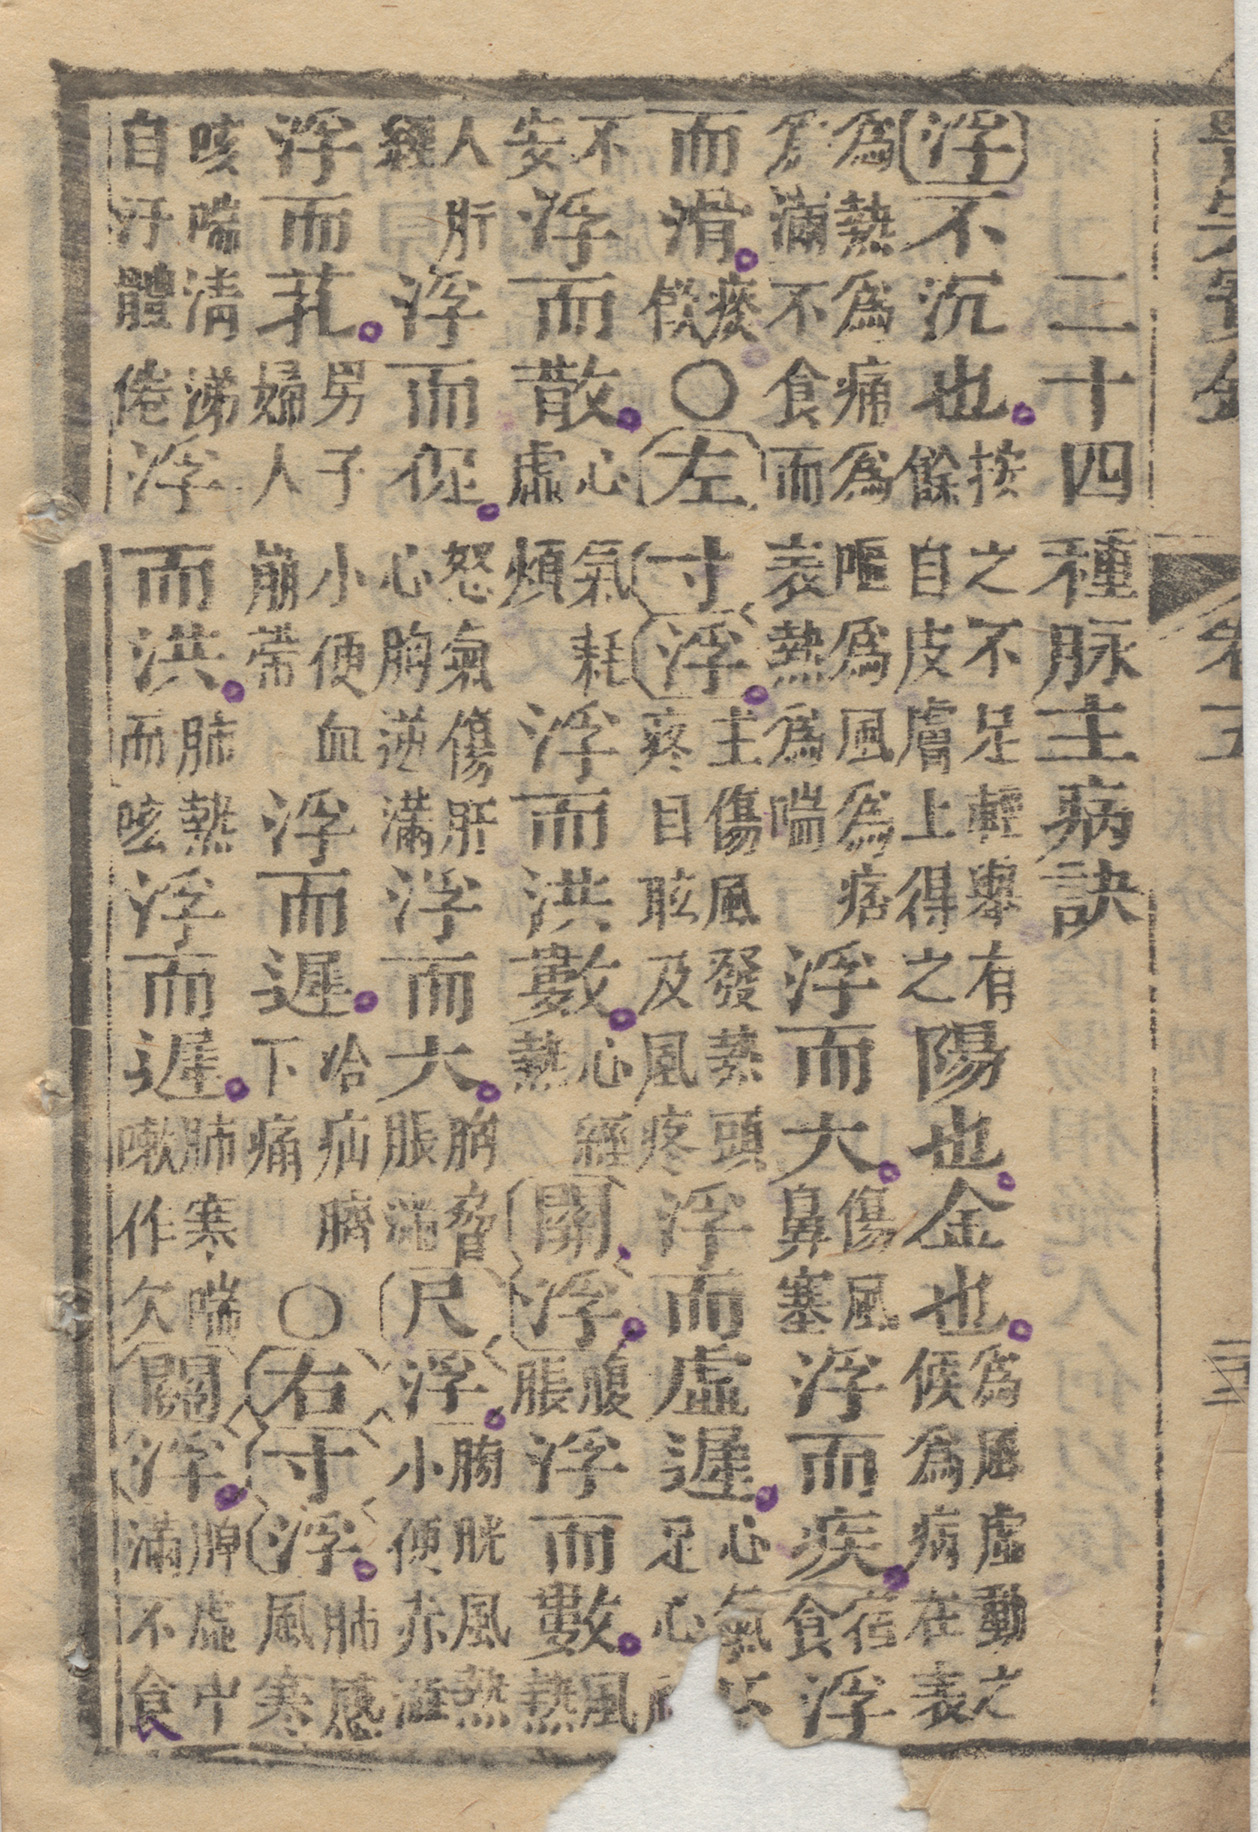 二十四種脉主病訣
浮不沉也按之不足輕舉有餘自皮膚上得之陽也金也為風虛動之候為病在表
為熱為痛為嘔為風為痞為滿不食而表熱為喘浮而大傷風鼻塞浮而疾宿食浮
而滑痰飲○左寸浮主傷風發熱頭疼目眩及風疼浮而虛遲心氣不足心
不安浮而散心氣耗虛煩浮而洪數心經熱關浮腹脹浮而數風熱
人肝經浮而促怒氣傷肝心胸逆滿浮而大胸脅脹滿尺浮膀胱風熱小便赤澁
浮而芤男子小便血婦人崩帶浮而遲冷疝臍下痛○右寸浮肺感風寒
咳喘清涕自汗體倦浮而洪肺熱而咳浮而遲肺寒喘嗽作欠關浮脾虛中滿不食